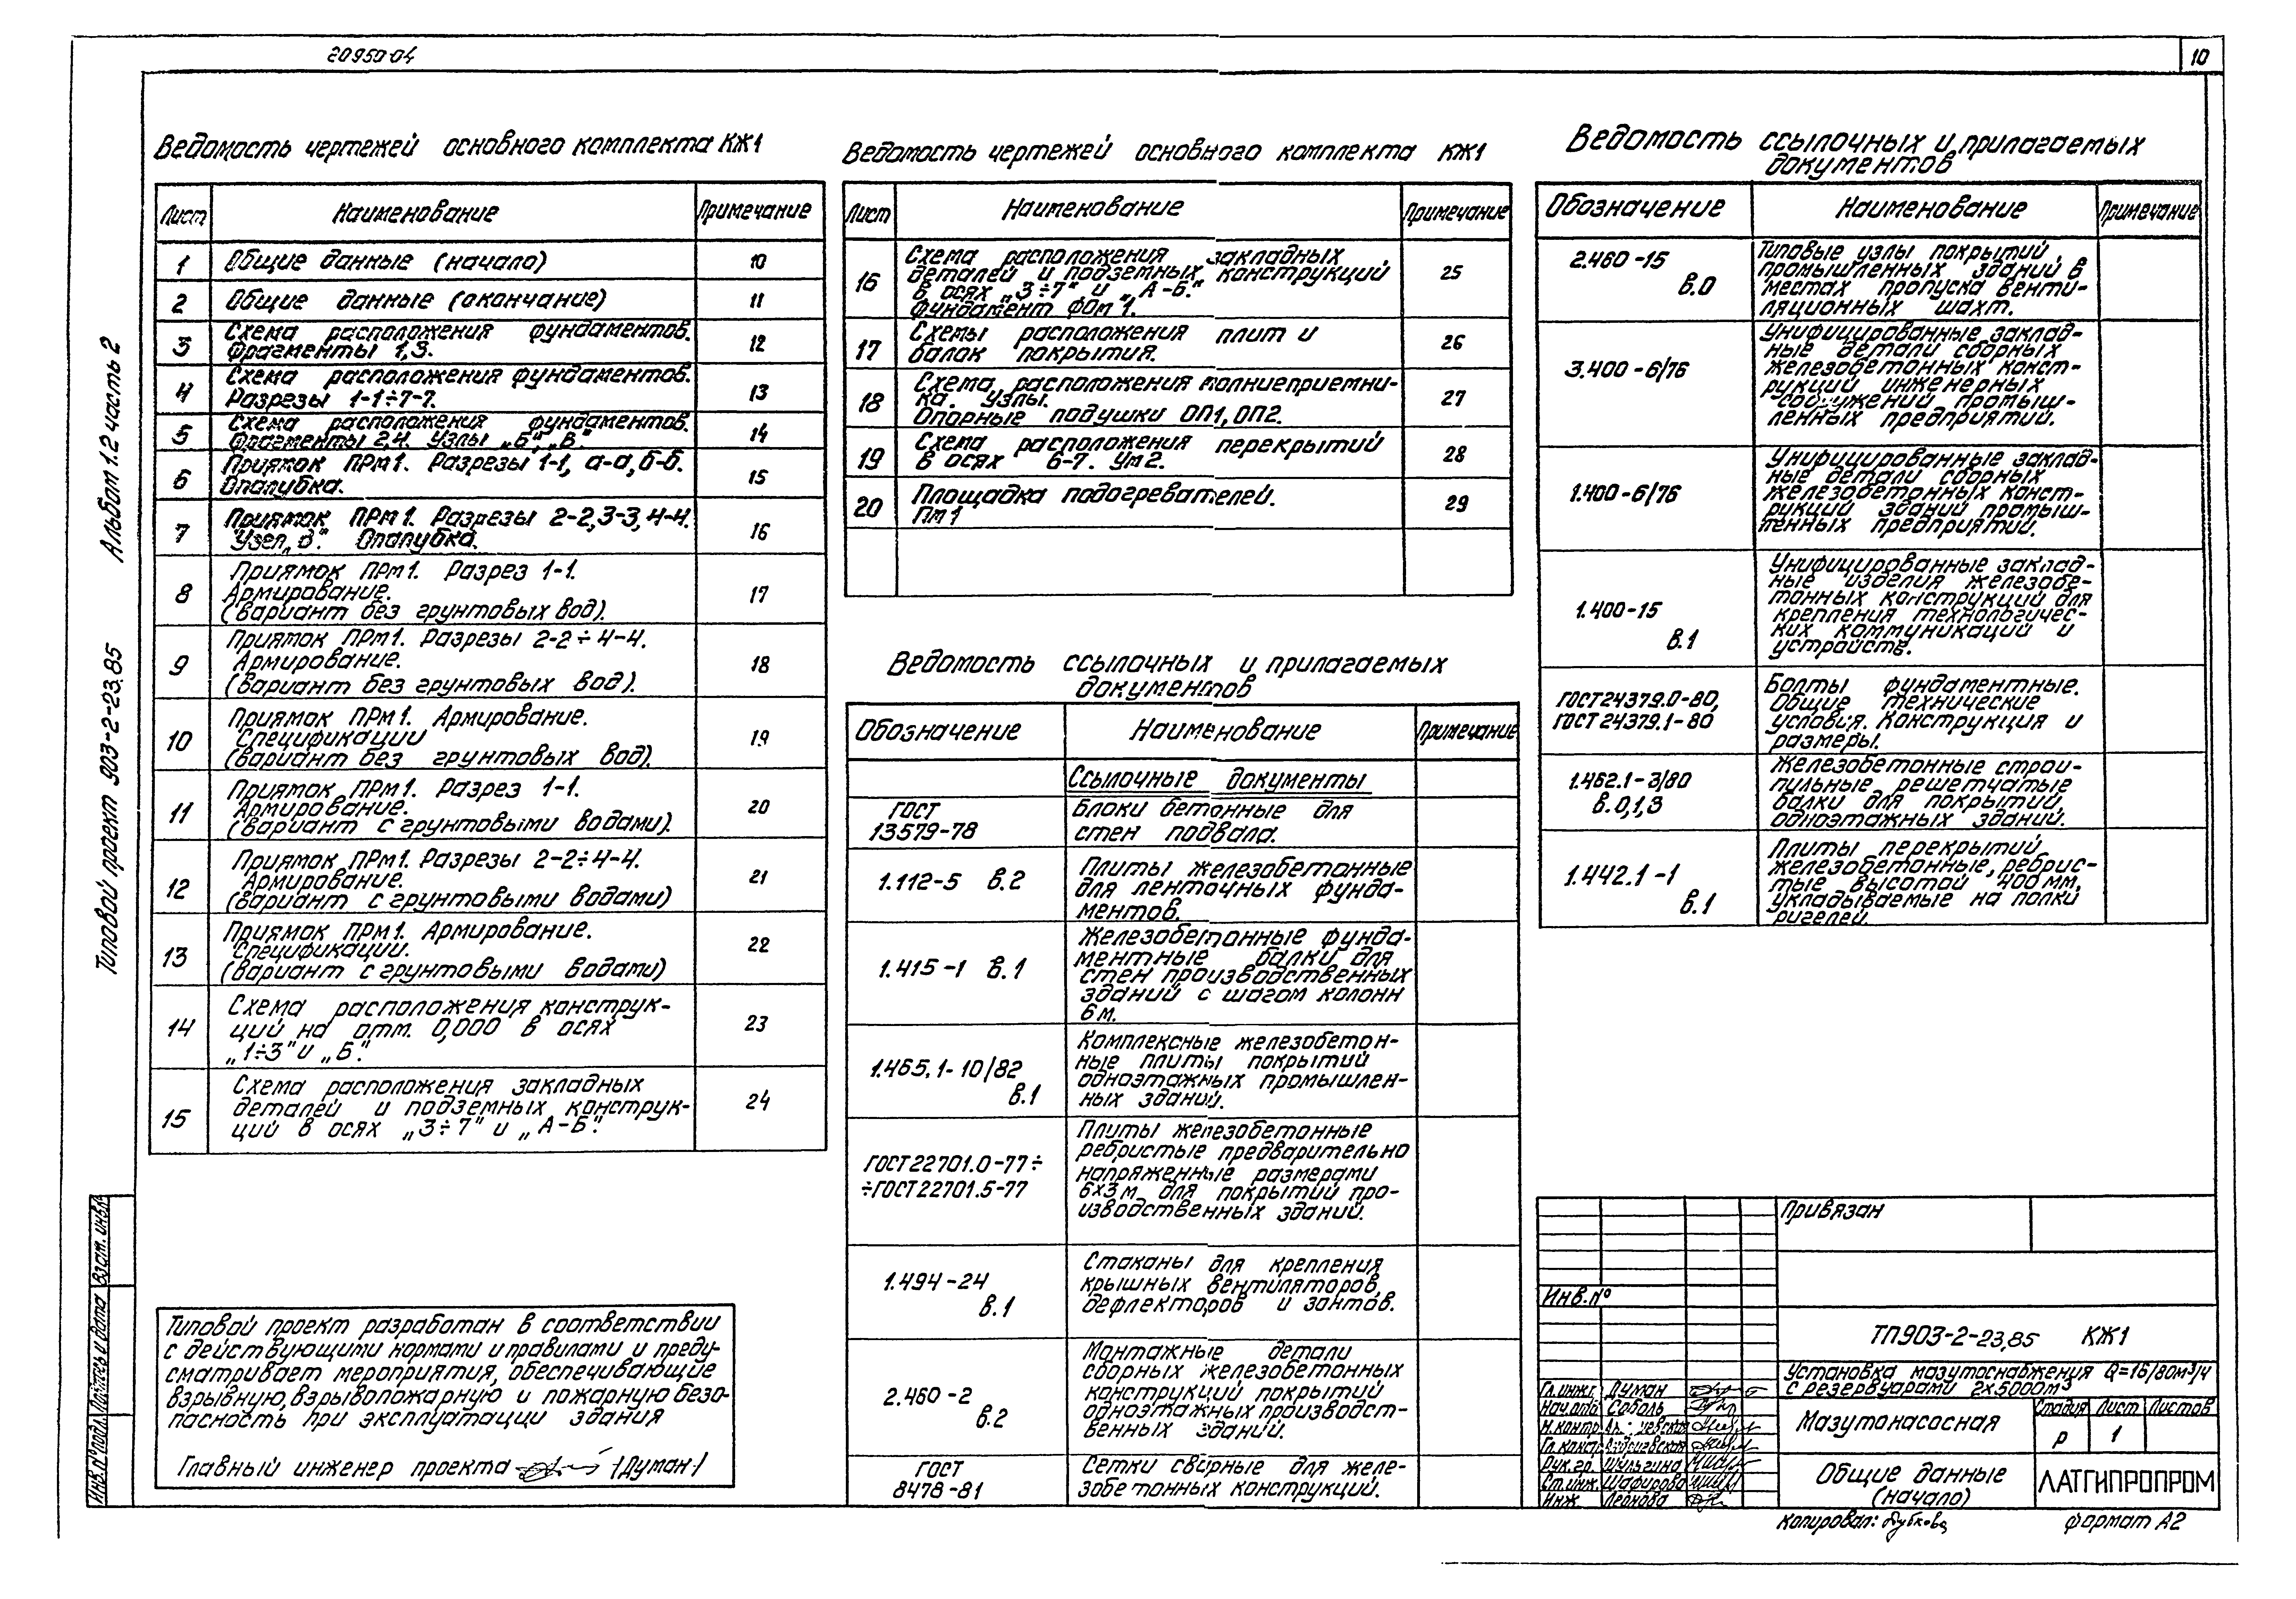 20950-04
10
Альбом 1.2 часть 2
Типовой проект 903-2-23.85
Ведомость чертежей основного комплекта КЖ1
Лист Наименование Примечание
1 Общие данные (начало) 10
2 Общие данные (окончание) 11
3 Схема расположения фундаментов. 12
Фрагменты 1,3.
4 Схема расположения фундаментов. 13
Разрезы 1-1÷7-7.
5 Схема расположения фундаментов. 14
Фрагменты 2,4. Узлы „Б“, „В“.
6 Приямок ПРм1. Разрезы 1-1, а-а, б-б. 15
Опалубка.
7 Приямок ПРм1. Разрезы 2-2, 3-3, 4-4. 16
Узел „д“. Опалубка.
8 Приямок ПРм1. Разрез 1-1. 17
Армирование.
(вариант без грунтовых вод).
9 Приямок ПРм1. Разрезы 2-2÷4-4. 18
Армирование.
(вариант без грунтовых вод).
10 Приямок ПРм1. Армирование. 19
Спецификации
(вариант без грунтовых вод).
11 Приямок ПРм1. Разрез 1-1. 20
Армирование.
(вариант с грунтовыми водами).
12 Приямок ПРм1. Разрезы 2-2÷4-4. 21
Армирование.
(вариант с грунтовыми водами)
13 Приямок ПРм1. Армирование. 22
Спецификации.
(вариант с грунтовыми водами)
14 Схема расположения конструк- 23
ций на отм. 0,000 в осях
„1÷3“ и „Б“.
15 Схема расположения закладных 24
деталей и подземных конструк-
ций в осях „3÷7“ и „А-Б“.
Типовой проект разработан в соответствии
с действующими нормами и правилами и преду-
сматривает мероприятия, обеспечивающие
взрывную, взрывопожарную и пожарную безо-
пасность при эксплуатации здания
Главный инженер проекта /Думан/
Ведомость чертежей основного комплекта КЖ1
Лист Наименование Примечание
16 Схема расположения закладных 25
деталей и подземных конструкций
в осях „3÷7“ и „А-Б“.
Фундамент ФОм1.
17 Схемы расположения плит и 26
балок покрытия.
18 Схема расположения молниеприемни- 27
ка. Узлы.
Опорные подушки ОП1, ОП2.
19 Схема расположения перекрытий 28
в осях 6-7. Ум2.
20 Площадка подогревателей. 29
Пм1
Ведомость ссылочных и прилагаемых
документов
Обозначение Наименование Примечание
Ссылочные документы
ГОСТ Блоки бетонные для
13579-78 стен подвала.
1.112-5 в.2 Плиты железобетонные
для ленточных фунда-
ментов.
1.415-1 в.1 Железобетонные фунда-
ментные балки для
стен производственных
зданий с шагом колонн
6 м.
1.465.1-10/82 Комплексные железобетон-
в.1 ные плиты покрытий
одноэтажных промышлен-
ных зданий.
ГОСТ22701.0-77÷ Плиты железобетонные
÷ГОСТ22701.5-77 ребристые предварительно
напряженные размерами
6×3м для покрытий про-
изводственных зданий.
1.494-24 Стаканы для крепления
в.1 крышных вентиляторов,
дефлекторов и зонтов.
2.460-2 Монтажные детали
в.2 сборных железобетонных
конструкций покрытий
одноэтажных производст-
венных зданий.
ГОСТ Сетки сварные для желе-
8478-81 зобетонных конструкций.
Ведомость ссылочных и прилагаемых
документов
Обозначение Наименование Примечание
2.460-15 Типовые узлы покрытий
в.0 промышленных зданий в
местах пропуска венти-
ляционных шахт.
3.400-6/76 Унифицированные заклад-
ные детали сборных
железобетонных конст-
рукций инженерных
сооружений промыш-
ленных предприятий.
1.400-6/76 Унифицированные заклад-
ные детали сборных
железобетонных конст-
рукций зданий промыш-
ленных предприятий.
1.400-15 Унифицированные заклад-
в.1 ные изделия железобе-
тонных конструкций для
крепления технологичес-
ких коммуникаций и
устройств.
ГОСТ24379.0-80, Болты фундаментные.
ГОСТ 24379.1-80 Общие технические
условия. Конструкция и
размеры.
1.462.1-3/80 Железобетонные строи-
в.0,1,3 пильные решетчатые
балки для покрытий
одноэтажных зданий.
1.442.1-1 Плиты перекрытий
в.1 железобетонные, ребрис-
тые высотой 400 мм,
укладываемые на полки
ригелей.
Привязан
Инв.№
ТП903-2-23,85 КЖ1
Установка мазутоснабжения Q=16/80м³/ч
с резервуарами 2×5000м³
Мазутонасосная
Стадия Лист Листов
Р 1
Общие данные
(начало)
ЛАТГИПРОПРОМ
Гл.инж. Думан
Нач.отд. Соболь
Н.контр.
Гл. конст.
Рук.гр. Шульгина
Ст.инж. Шафирова
Инж. Леонова
Копировал: Дубкова
формат А2
Инв.№подл. Подпись и дата Взат. инв.№